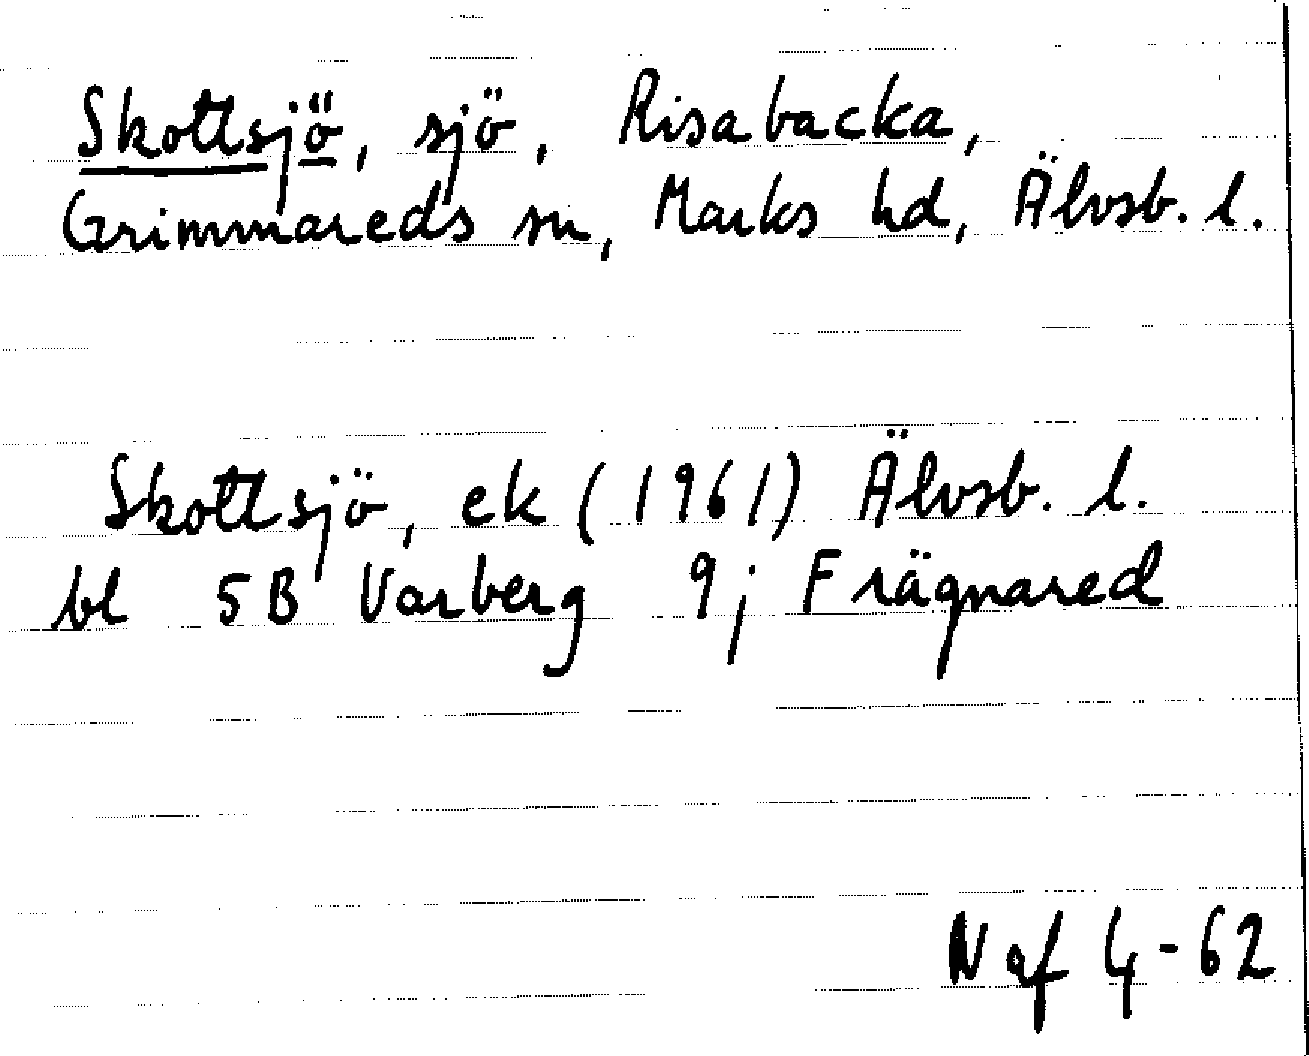 Skottsjö, sjö, Risabacka,
Grimmareds sn, Marks hd, Älvsb. l.
Skottsjö, ek (1961) Älvsb. l.
bl 5B Varberg 9; Frägnared
Naf 4-62